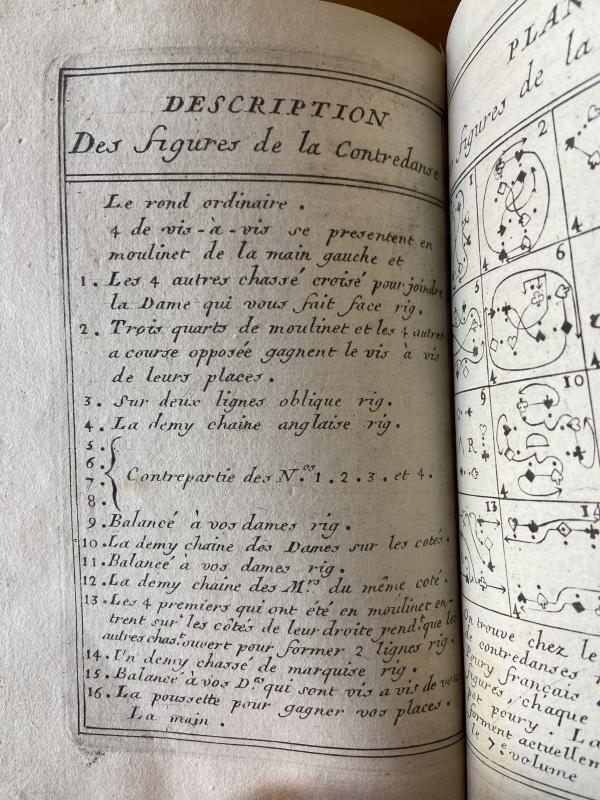 DESCRIPTION
Des figures de la Contredanse
Le rond ordinaire.
4 de vis-à-vis se presentent en
moulinet de la main gauche et
1. Les 4 autres chassé croisé pour joindre
la Dame qui vous fait face rig.
2. Trois quarts de moulinet et les 4 autres
a course opposée gagnent le vis à vis
de leurs places.
3. Sur deux lignes oblique rig.
4. La demy chaine anglaise rig.
5.
6.
7.
8.
Contrepartie des N.os 1. 2. 3. et 4.
9. Balancé à vos dames rig.
10. La demy chaine des Dames sur les cotés.
11. Balancé à vos dames rig.
12. La demy chaine des M.rs du même coté.
13. Les 4 premiers qui ont été en moulinet en-
trent sur les côtés de leur droite pend.t que les
autres chas.t ouvert pour former 2 lignes rig.
14. Un demy chassé de marquise rig.
15. Balancé à vos D.es qui sont vis a vis de vous
16. La poussette pour gagner vos places.
La main.
PLAN
figures de la
1
2
4
5
6
4
9
10
4
13
14
4
On trouve chez le
de contredanses
poury français
figures, chaque
pot poury. La
forment actuellem
le 7.e volume